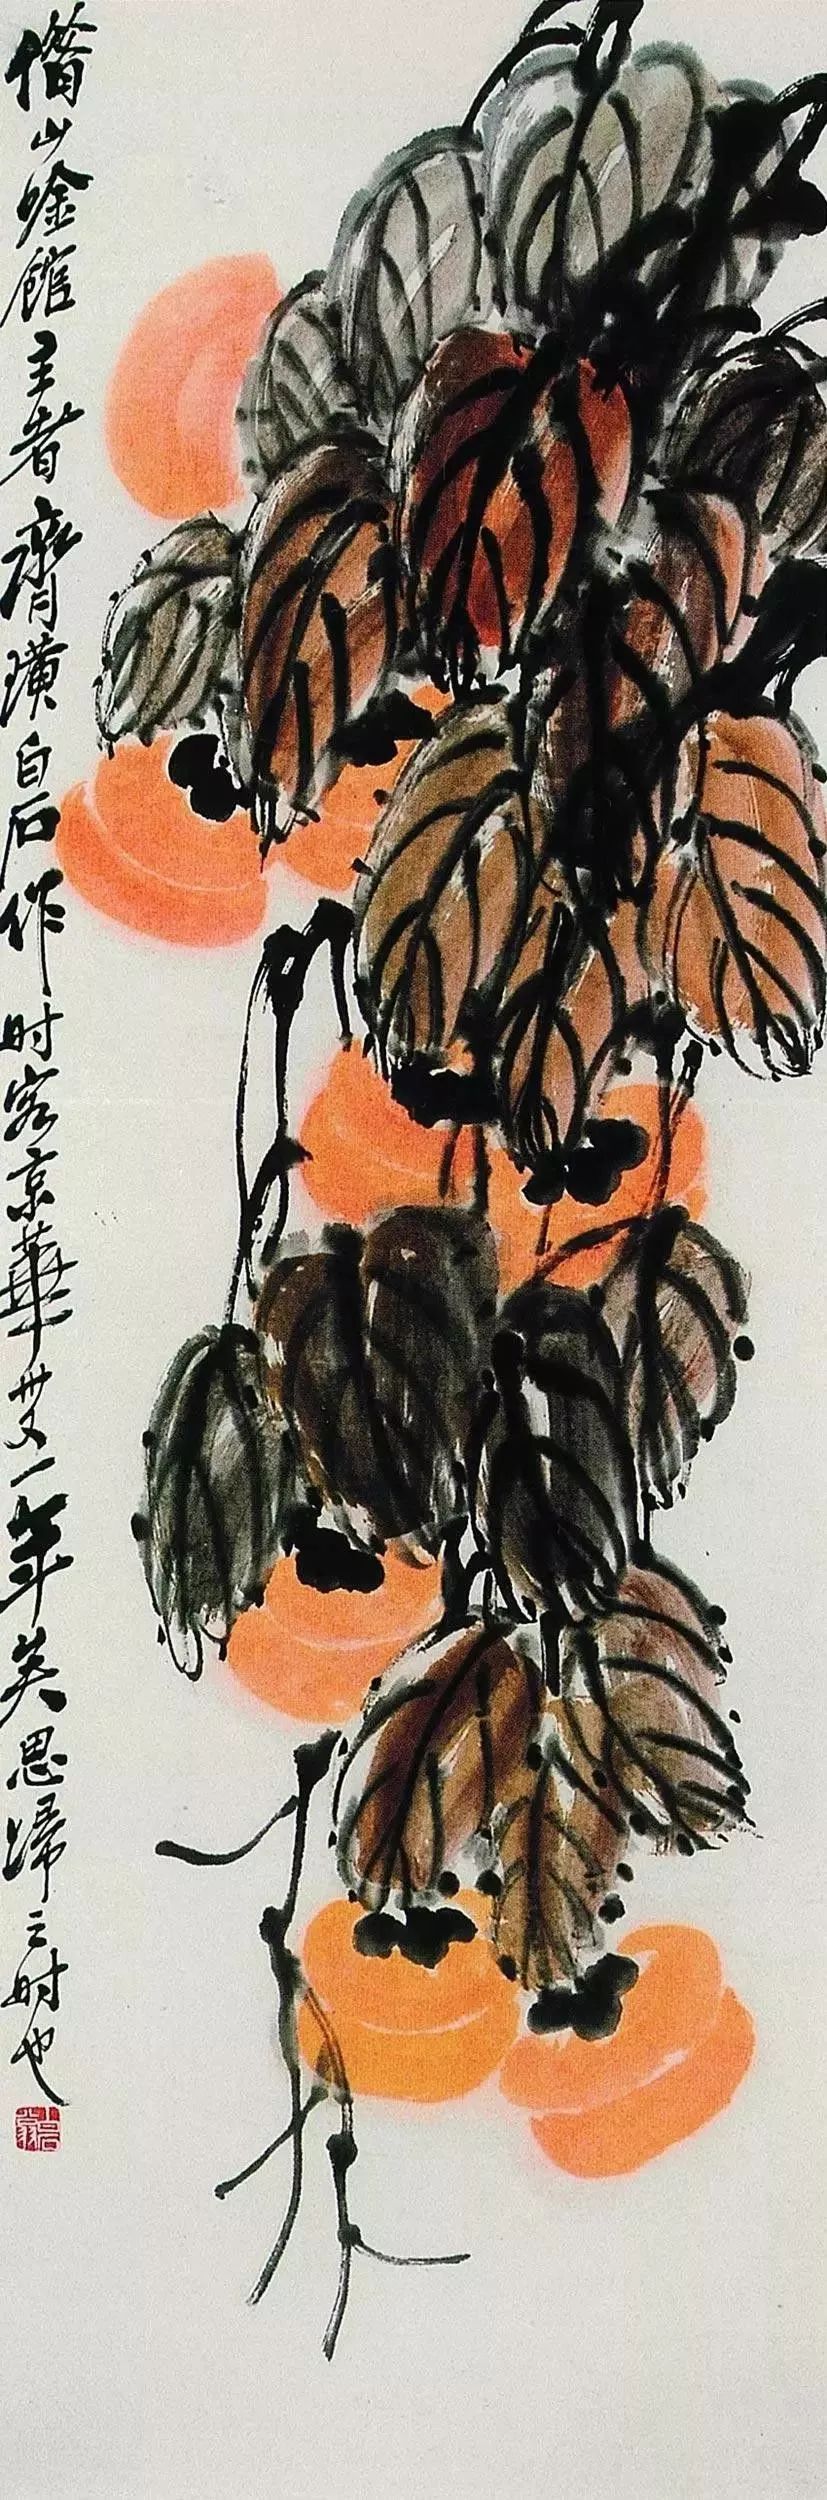 借山唫館主者齊璜白石作时客京華卅又一年矣思歸之时也
白石翁